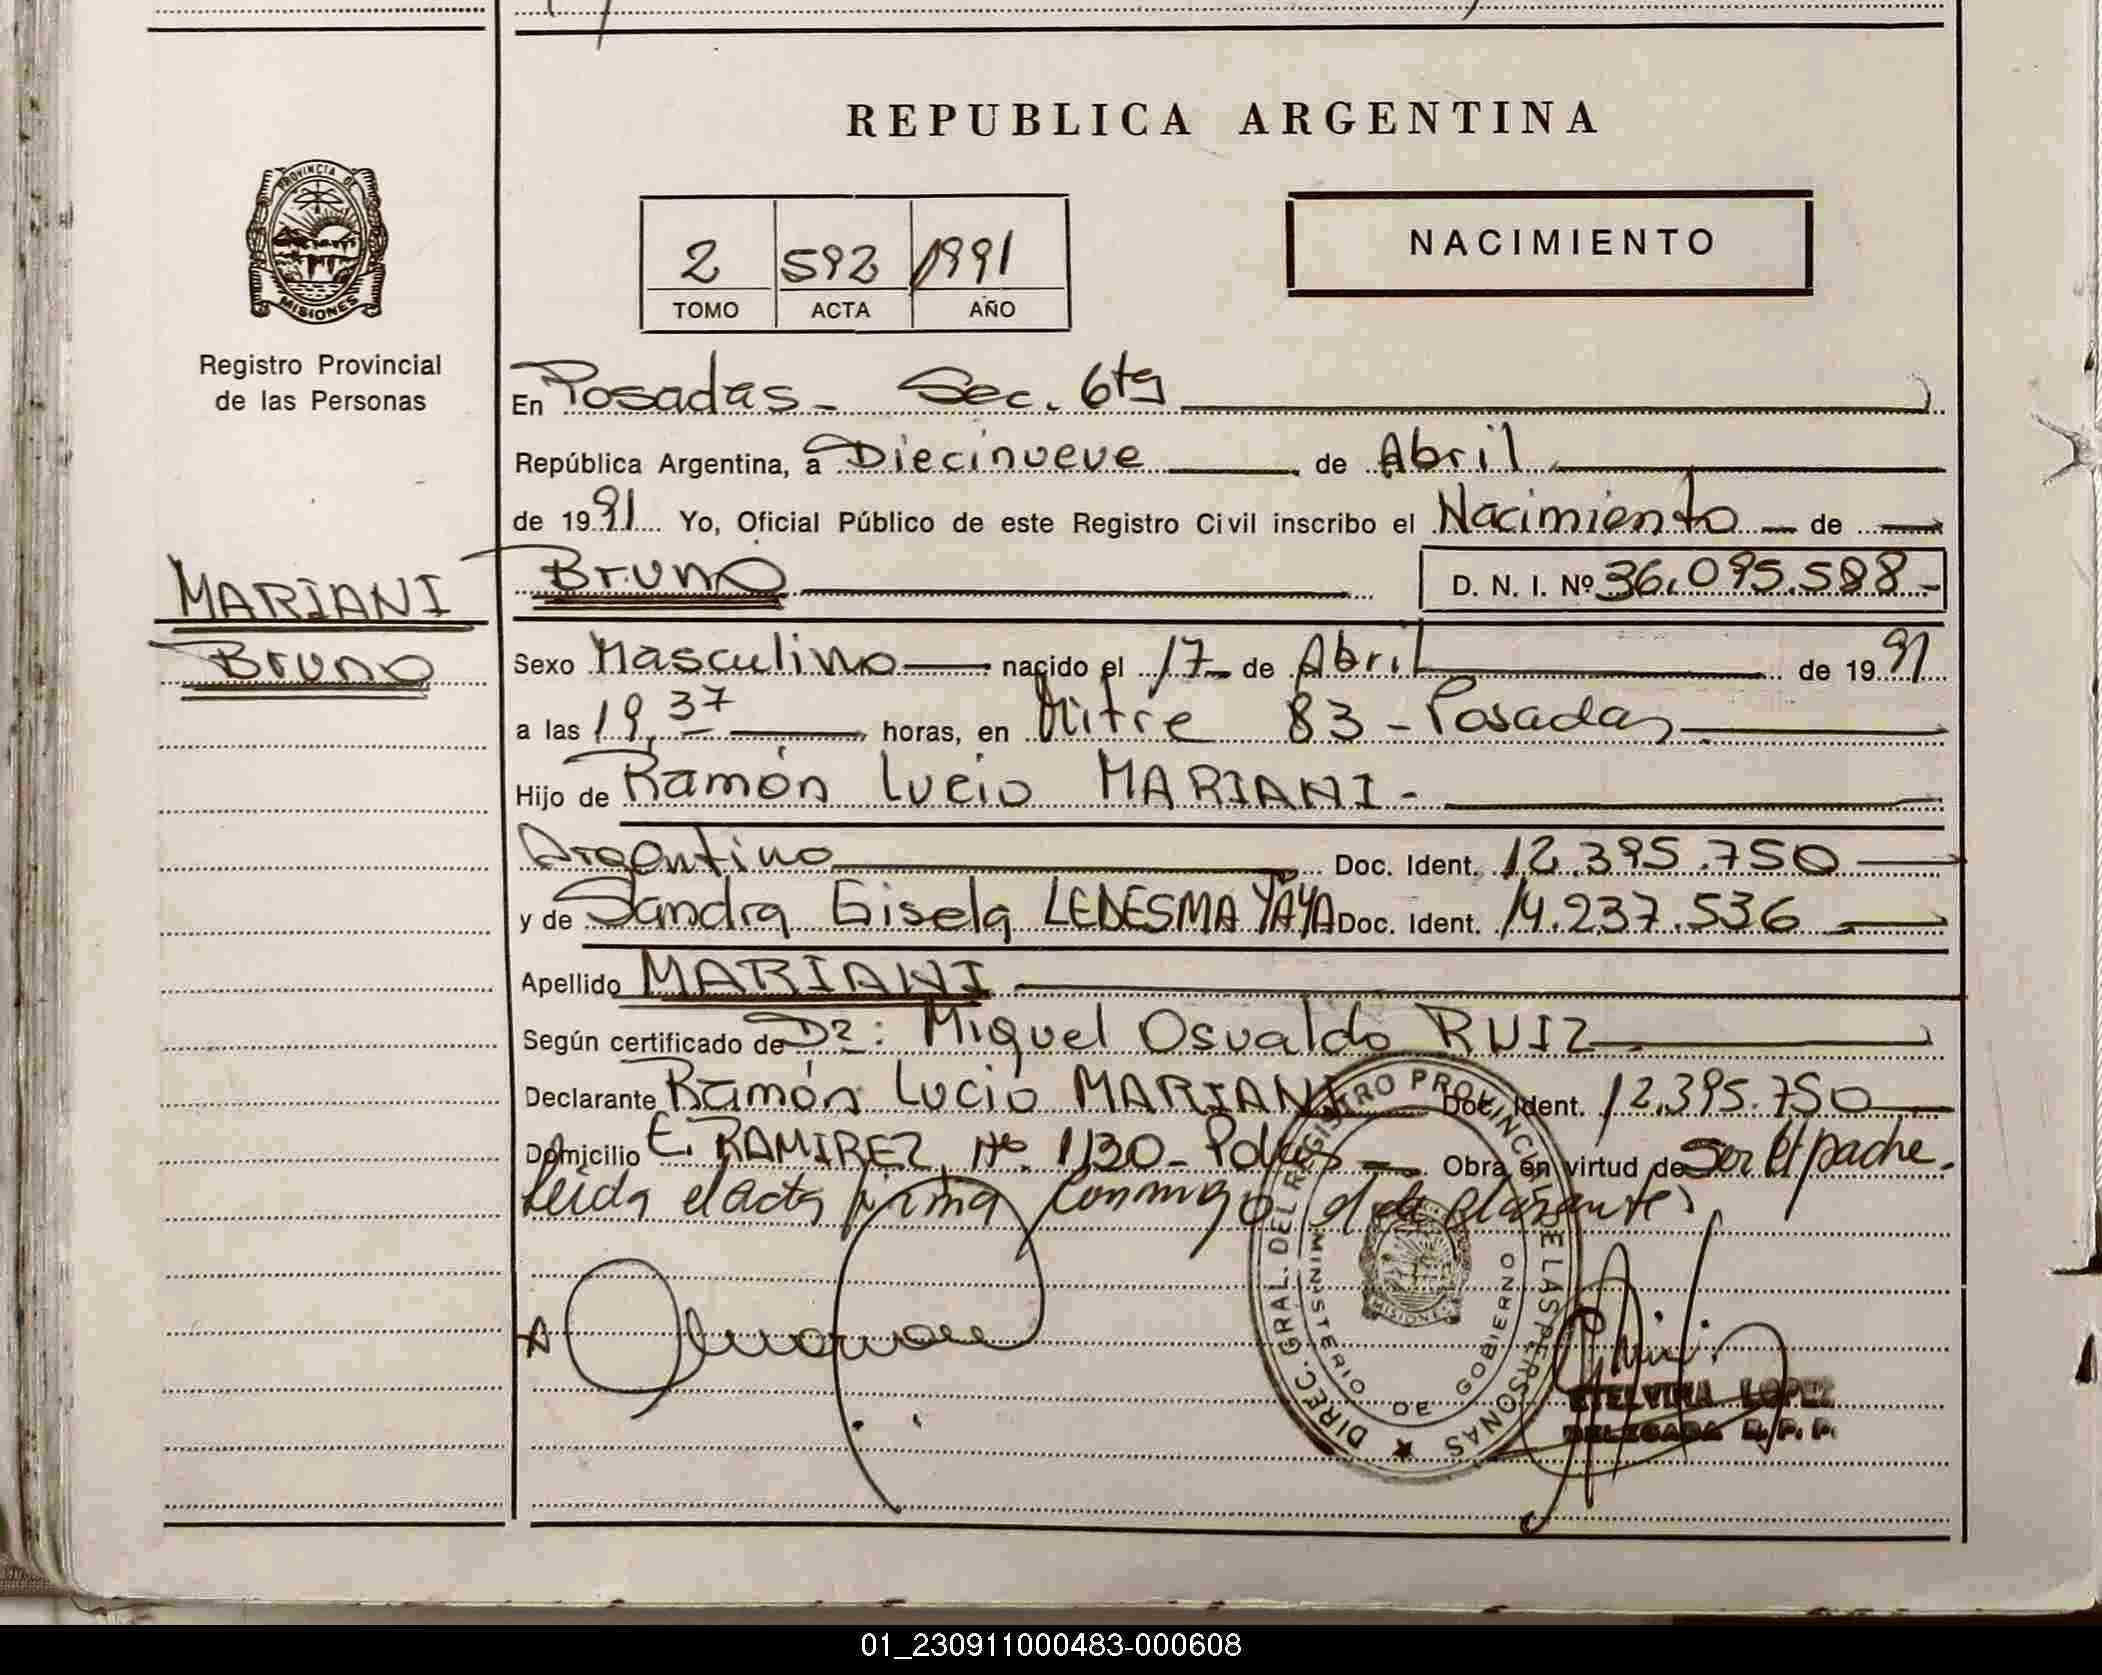 REPUBLICA ARGENTINA
PROVINCIA DE
MISIONES
Registro Provincial
de las Personas
2 592 1991
TOMO ACTA AÑO
NACIMIENTO
En Posadas - Sec. 6ta
República Argentina, a Diecinueve de Abril
de 1991 Yo, Oficial Público de este Registro Civil inscribo el Nacimiento de
MARIANI
Bruno
Bruno D. N. I. Nº 36.095.588.-
Sexo Masculino nacido el 17 de Abril de 1991
a las 19,37 horas, en Mitre 83 - Posadas
Hijo de Ramón Lucio MARIANI -
Argentino Doc. Ident. 12.395.750
y de Sandra Gisela LEDESMA YAYA Doc. Ident. 14.237.536
Apellido MARIANI
Según certificado de Dr: Miguel Osvaldo RUIZ
Declarante Ramón Lucio MARIANI Doc. Ident. 12.395.750
Domicilio E. RAMIREZ Nº 1130 - Pdas Obra en virtud de Ser el padre.
Leida el acta firma conmigo el declarante
DIREC. GRAL. DEL REGISTRO PROVINCIAL DE LAS PERSONAS
MINISTERIO DE GOBIERNO
MISIONES
ETELVINA LOPEZ
DELEGADA R.P.P.
01_230911000483-000608